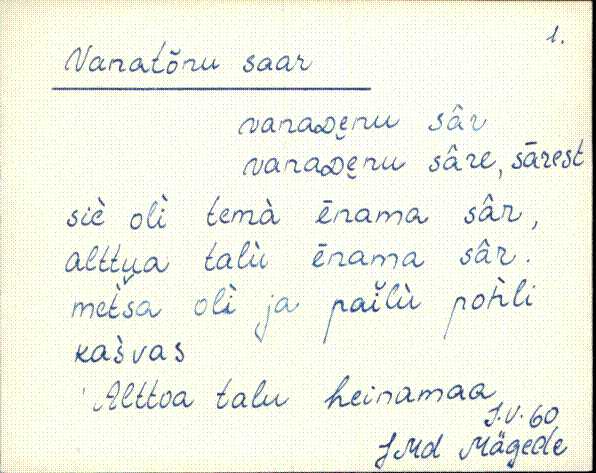 1.
Vanatõnu saar
vanaᴅe̮nu sâr
vanaᴅe̮nu sâre, sārest
siè olì temà ēnama sâr,
alttu̬a talù ēnama sâr.
metsa olì ja pail̆ù pohli
kašvas
Alttoa talu heinamaa
J.V. 60
JMd Mägede